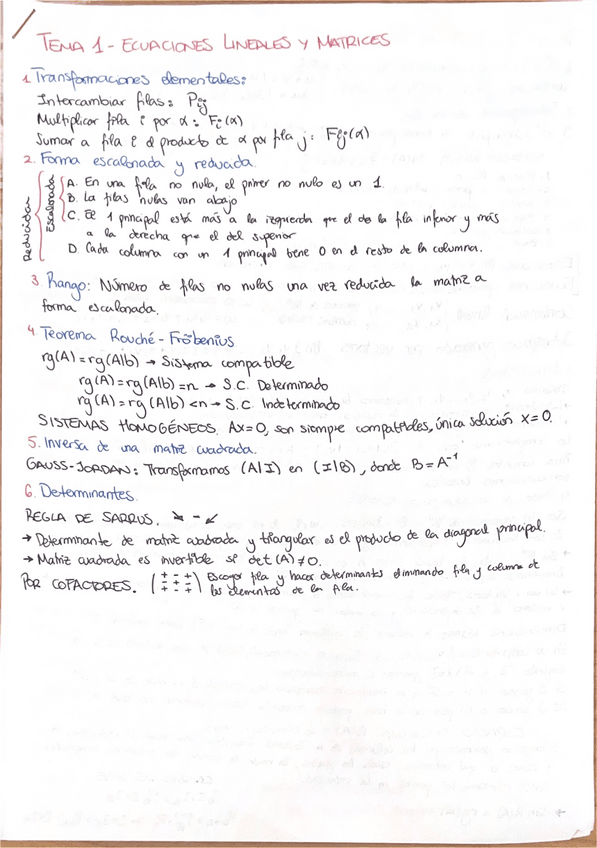 TEMA 1 - ECUACIONES LINEALES Y MATRICES
1. Transformaciones elementales:
Intercambiar filas: Pij
Multiplicar fila i por α: Fi(α)
Sumar a fila i el producto de α por fila j: Fij(α)
2. Forma escalonada y reducida.
Reducidar
Escalonada
A. En una fila no nula, el primer no nulo es un 1.
B. La filas nulas van abajo
C. El 1 principal está más a la izquierda que el de la fila inferior y más
a la derecha que el del superior
D. Cada columna con un 1 principal tiene 0 en el resto de la columna.
3. Rango: Número de filas no nulas una vez reducida la matriz a
forma escalonada.
4. Teorema Rouché-Fröbenius
rg(A) = rg(A|b) → Sistema compatible
rg(A) = rg(A|b) = n → S.C. Determinado
rg(A) = rg(A|b) < n → S.C. Indeterminado
SISTEMAS HOMOGÉNEOS. Ax=0, son siempre compatibles, única solución x=0.
5. Inversa de una matriz cuadrada.
GAUSS-JORDAN: Transformamos (A|I) en (I|B), donde B=A⁻¹
6. Determinantes.
REGLA DE SARRUS. ↘ - ↙
→ Determinante de matriz cuadrada y triangular es el producto de la diagonal principal.
→ Matriz cuadrada es invertible si det(A)≠0.
POR COFACTORES. (+ - + - + - + - +) Escoger fila y hacer determinantes eliminando fila y columna de
los elementos de la fila.